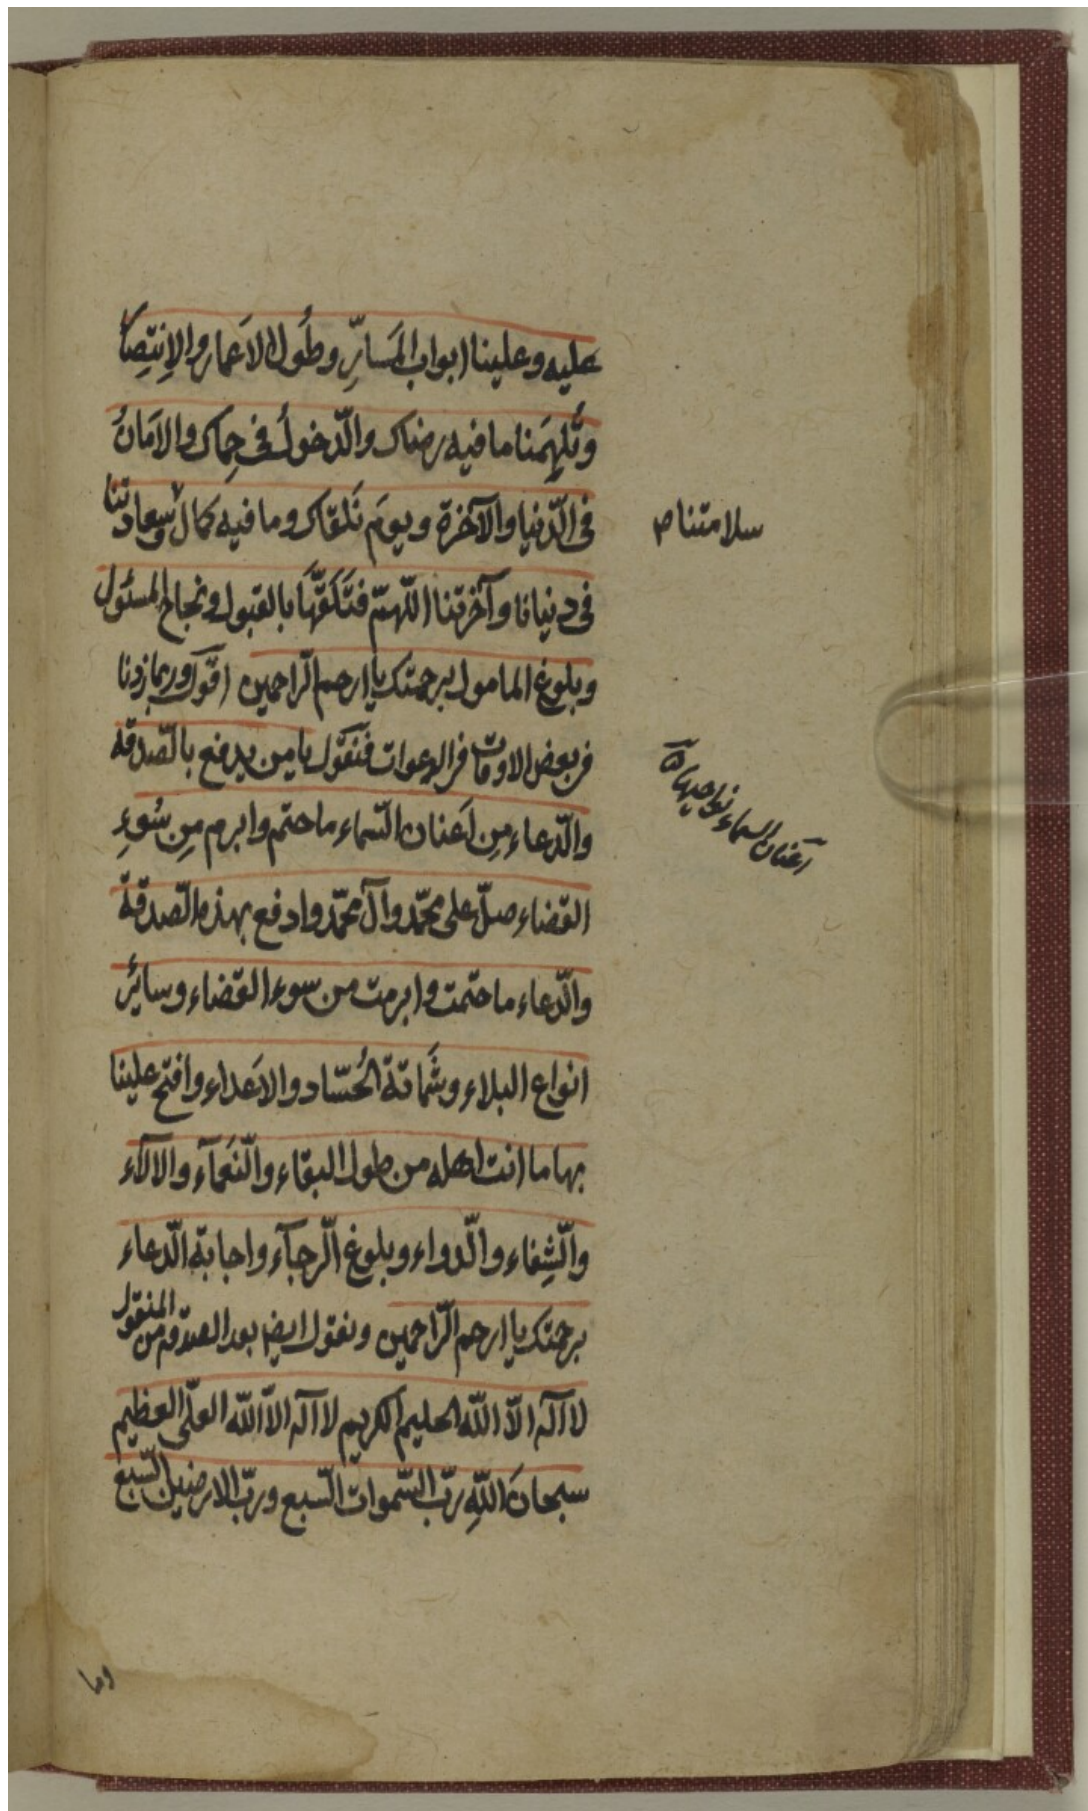 عليه وعلينا ابواب المَسارِّ وطُول الاَعمار والاِنتِصا
وتُلهِمَنا ما فيه رضاك والدّخولُ في حِماك والاَمَانُ
في الدّنيا والآخرة ويومَ نَلقاك وما فيه كمالُ وسعادتنا
سلامتنا ص
في دنيانا وآخرتنا اللّهمّ فتَلَقَّهَا بالقبول ونجاح المسئول
وبلوغ المامول برحمتك يا ارحم الرّاحمين اقول وربما زدنا
في بعض الاوقات في الدعوات فنقول يا من يدفع بالصّدقة
اَعنان السماء نواحيها
والدّعاء مِن اَعنان السّماء ما حتم وابرم مِن سُوءِ
القضاء صلّ على محمّد وآل محمّد وادفع بهذه الصّدقة
والدّعاء ما حتمت وابرمت من سوء القضاء وسائِر
انواع البلاء وشَماتة الحُسّاد والاَعداء وافتح علينا
بها ما انت اهله من طول البقاء والنَّعمآء والالآء
والشِّفاء والدّواء وبلوغ الرّجآء واجابة الدّعاء
برحمتك يا ارحم الرّاحمين ونقول ايضا بعد الصدقة من المنقول
لا اله الاّ اللّه الحليم الكريم لا اله الاّ اللّه العلّى العظيم
سبحانَ اللّهِ ربّ السّموات السّبع وربّ الارضين السّبع
وما